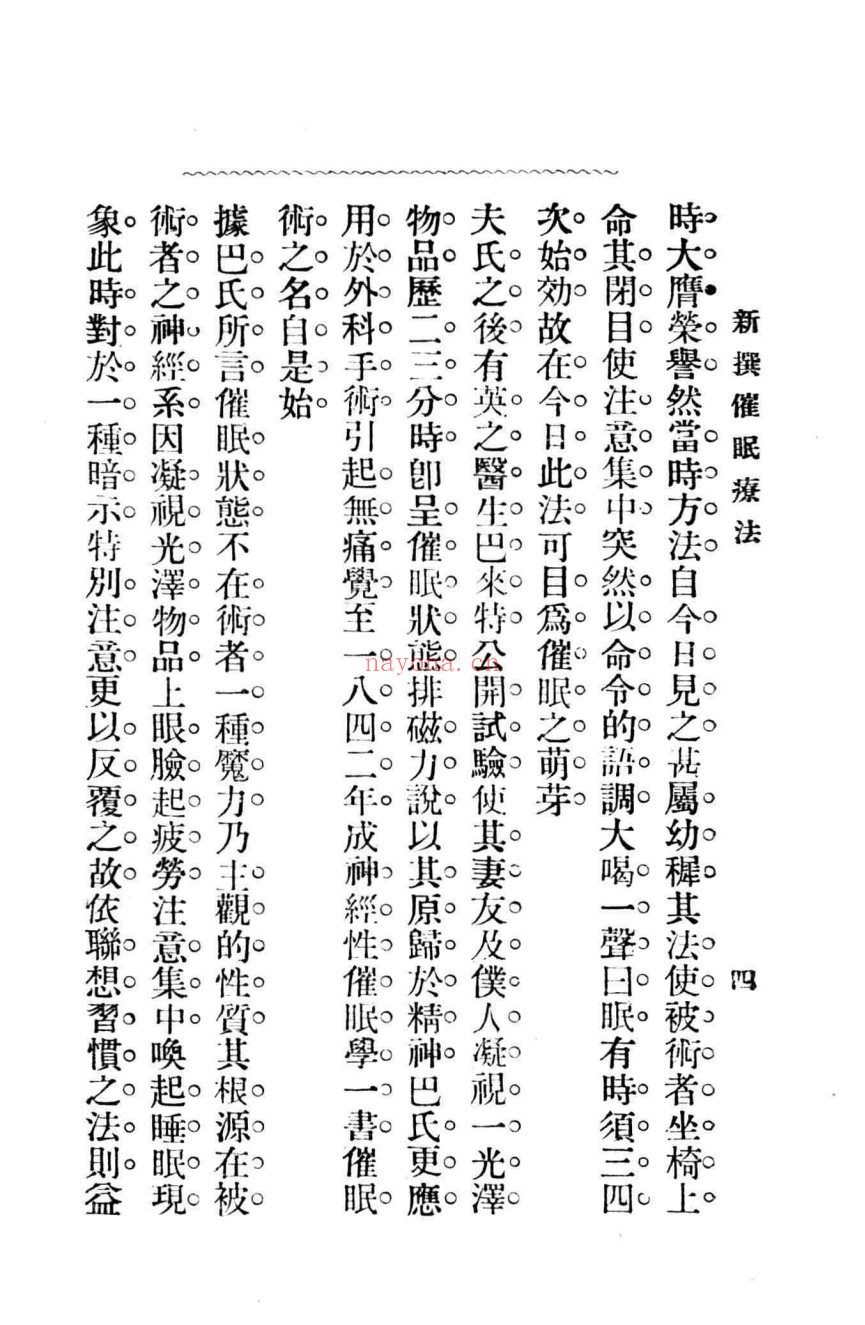 新撰催眠療法
四
時大膺榮譽然當時方法自今日見之甚屬幼穉其法使被術者坐椅上
命其閉目使注意集中突然以命令的語調大喝一聲曰眠有時須三四
次始効故在今日此法可目爲催眠之萌芽
夫氏之後有英之醫生巴來特公開試驗使其妻友及僕人凝視一光澤
物品歷二三分時卽呈催眠狀態排磁力說以其原歸於精神巴氏更應
用於外科手術引起無痛覺至一八四二年成神經性催眠學一書催眠
術之名自是始
據巴氏所言催眠狀態不在術者一種魔力乃主觀的性質其根源在被
術者之神經系因凝視光澤物品上眼臉起疲勞注意集中喚起睡眠現
象此時對於一種暗示特別注意更以反覆之故依聯想習慣之法則益
nayona.cn